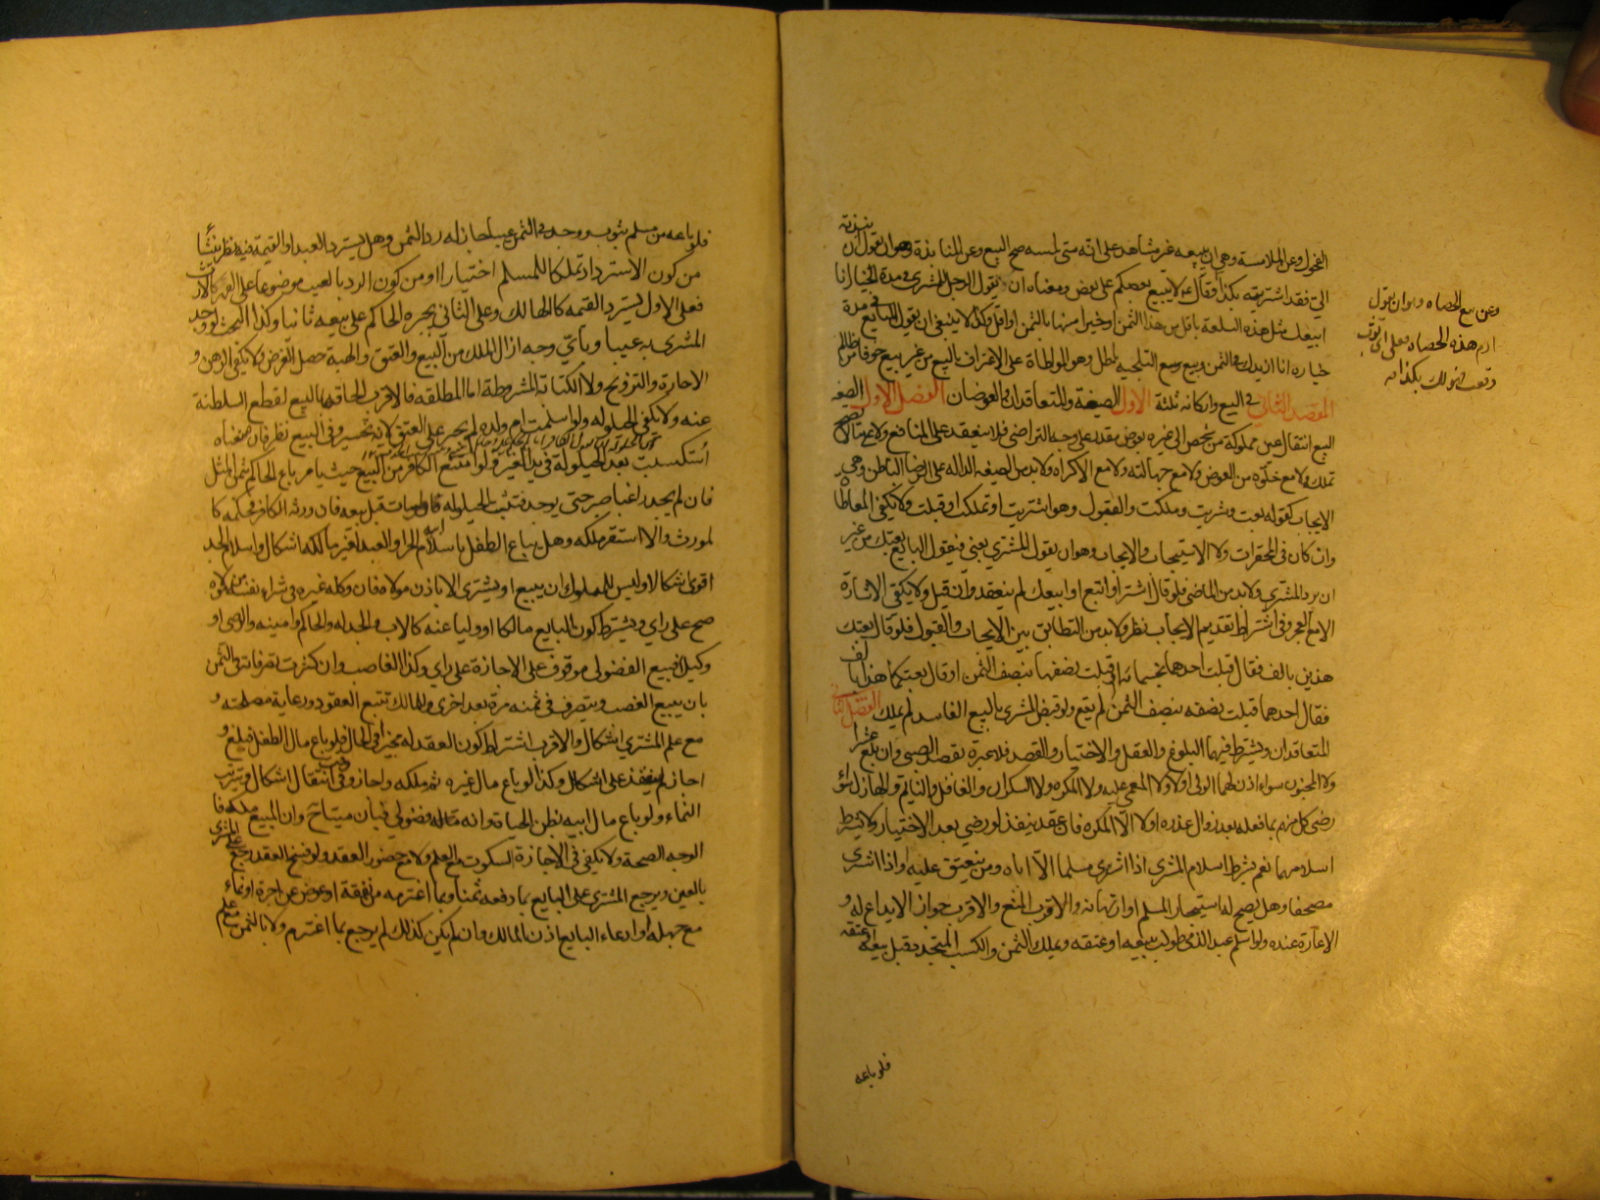 الفحول وعن الملامسة وهي ان يبيعه غير مشاهد على انه متى لمسه صح البيع وعن المنابذة وهو ان يقول ان نبذته
الي فقد اشتريته بكذا وقال ع لا يبيع بعضكم على بعض ومعناه ان يقول الرجل للمشتري في مدة الخيار انا
ابيعك مثل هذه السلعة باقل من هذا الثمن او خيرا منها بالثمن او اقل وكذا لا ينبغي ان يقول للبايع في مدة
خياره انا ازيدك في الثمن وبيع التلجية باطل وهو المواطاة على الاعتراف بالبيع من غير بيع خوفا من ظالم
المقصد الثاني في البيع واركانه ثلثة الاول الصيغة والمتعاقدان والعوضان الفصل الاول الصيغه
البيع انتقال عين مملوكة من شخص الى غيره بعوض مقدر على وجه التراضي فلا ينعقد على المنافع ولا على ما لا يصح
تملكه ولا مع خلوه من العوض ولا مع جهالته ولا مع الاكراه ولا بد من الصيغه الدالة على الرضا الباطن وهي
الايجاب كقوله بعت وشريت وملكت والقبول وهو اشتريت او تملكت او قبلت ولا يكفي المعاطاة
وان كان في المحقرات ولا الاستيجاب والايجاب وهو ان يقول المشتري بعني فيقول البايع بعتك من غير
ان يرد المشتري ولا بد من الماضي فلو قال اشتر او ابتع او ابيعك لم ينعقد وان قبل ولا يكفي الاشارة
الا مع العجز وفي اشتراط تقديم الايجاب نظر ولا بد من التطابق بين الايجاب والقبول فلو قال بعتك
هذين بالف فقال قبلت احدهما بخمسمائة او قبلت نصفهما بنصف الثمن او قال بعتكما هذا بالف
فقال احدهما قبلت نصفه بنصف الثمن لم يقع ولو قبض المشتري بالبيع الفاسد لم يملك الفصل الثاني
المتعاقدان ويشترط فيهما البلوغ والعقل والاختيار والقصد فلا عبرة بعقد الصبي وان بلغ عشرا
ولا المجنون سواء اذن لهما الولي او لا ولا المغمى عليه ولا المكره ولا السكران والغافل والنايم والهازل سواء
رضي كل منهم بما فعله بعد زوال عذره او لا الا المكره فان عقده ينفذ لو رضي بعد الاختيار ولا يشترط
اسلامهما نعم يشترط اسلام المشتري اذا اشترى مسلما الا اباه ومن ينعتق عليه او اذا اشترى
مصحفا وهل يصح له استيجار المسلم او ارتهانه والاقرب المنع والاقرب جواز الايداع له و
الاعارة عنده ولو اسلم عبد الذمي طولب ببيعه او عتقه ويملك الثمن والكسب المتجدد قبل بيعه او عتقه
فلو باعه
وعن بيع الحصاه وهو ان يقول
ارم هذه الحصاه فعلى اي ثوب
وقعت فهو لك بكذا
فلو باعه من مسلم بثوب ووجد في الثمن عيبا جاز له رد الثمن وهل يسترد العبد او القيمة فيه نظر ينشأ
من كون الاسترداد تملكا للمسلم اختيارا او من كون الرد بالعيب موضوعا على القهر كالارث
فعلى الاول يسترد القيمه كالهالك وعلى الثاني يجبره الحاكم على بيعه ثانيا وكذا البحث لو وجد
المشتري به عيبا وباي وجه ازال الملك من البيع والعتق والهبة حصل الغرض ولا يكفي الرهن و
الاجارة والتزويج ولا الكتابة المشروطة اما المطلقه فالاقرب الحاقها بالبيع لقطع السلطنة
عنه ولا يكفي الحيلولة ولو اسلمت ام ولده لم يجبر على العتق لانه تخسير وفي البيع نظر فان منعناه
استكسبت بعد الحيلولة في يد الغير ولو امتنع الكافر من البيع حيث يؤمر باع الحاكم بثمن المثل
فان لم يجد راغبا صبر حتى يوجد فتثبت الحيلولة ولو مات قبل بيعه فان ورثه الكافر فحكمه كا
لمورث والا استقر ملكه وهل يباع الطفل باسلام ابيه الحر او العبد لغير مالكه اشكال واسلام الجد
اقوى اشكالا وليس للمملوك ان يبيع او يشتري الا باذن مولاه فان وكله غيره في شراء نفسه من مولاه
صح على راي ويشترط كون البايع مالكا او وليا عنه كالاب والجد له والحاكم وامينه والوصي او
وكيلا فبيع الفضولي موقوف على الاجازة على راي وكذا الغاصب وان كثرت تصرفاته في الثمن
بان يبيع الغصب ويتصرف في ثمنه مرة بعد اخرى وللمالك تتبع العقود ورعاية مصلحته و
مع علم المشتري اشكال والاقرب اشتراط كون العقد له مجيز في الحال فلو باع مال الطفل فبلغ و
اجاز لم ينفذ على اشكال وكذا لو باع مال غيره ثم ملكه واجاز وفي وقت انتقال اشكال ويترتب
النماء ولو باع مال ابيه بظن الحياة وانه فضولي فبان ميتا ح وان المبيع ملكه فا
الوجه الصحة ولا يكفي في الاجازة السكوت مع العلم ولا مع حضور العقد ولو فسخ العقد رجع على المشتري
بالعين ويرجع المشتري على البايع بما دفعه ثمنا وبما اغترمه من نفقة او عوض عن اجرة او نماء
مع جهله او ادعاء البايع اذن المالك وان لم يكن كذلك لم يرجع بما اغترم ولا بالثمن مع علم